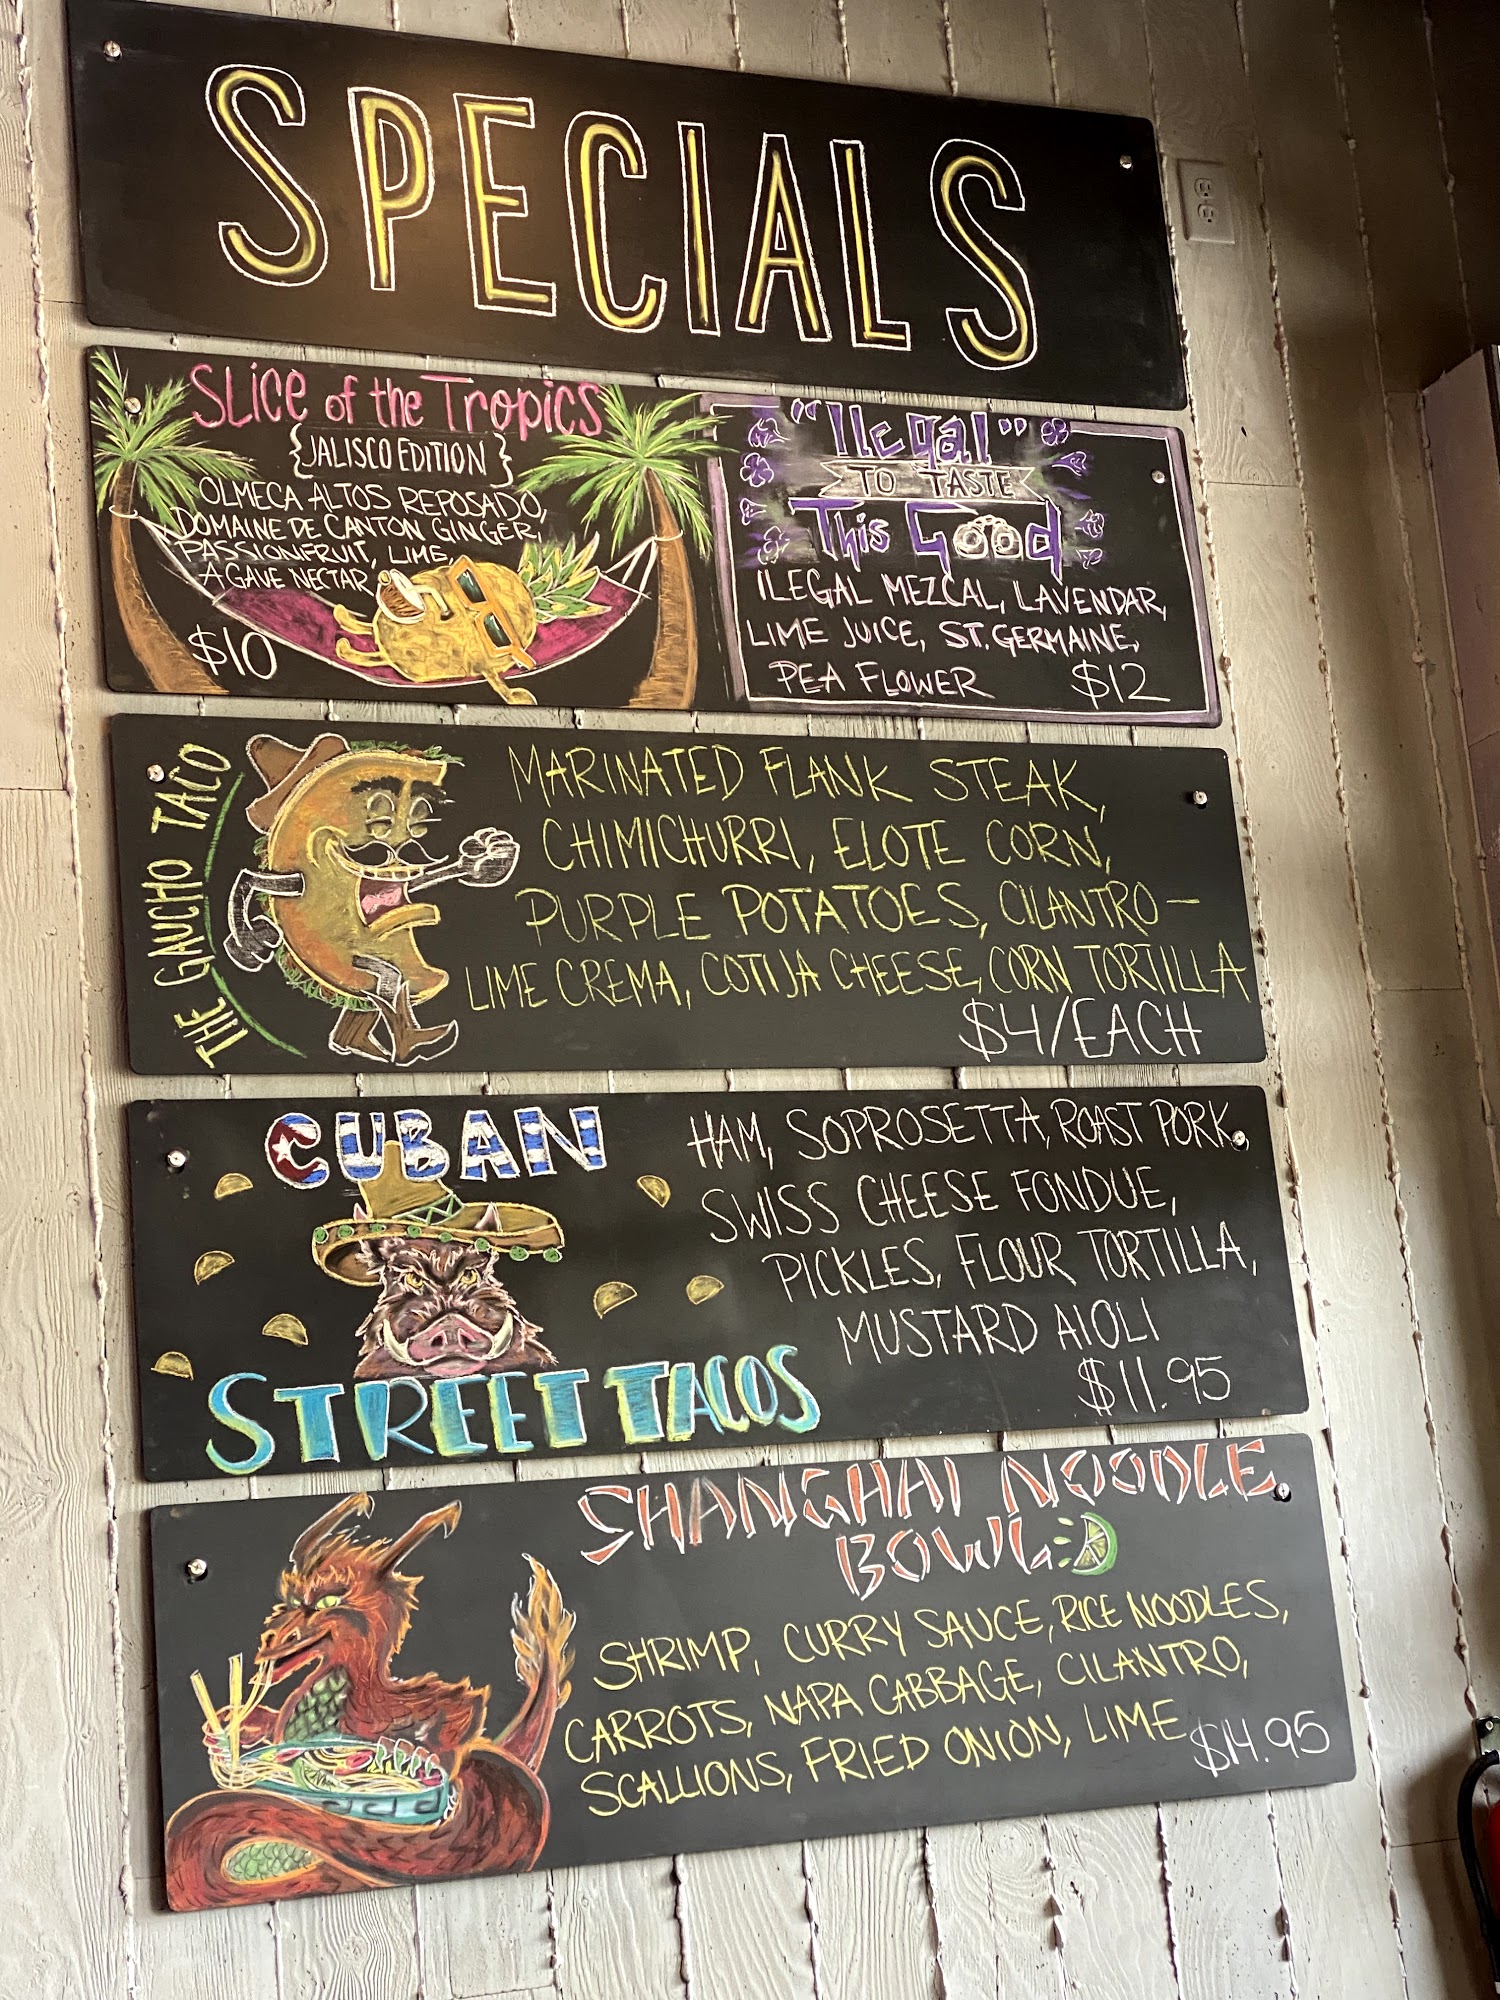 SPECIALS
SLice of the Tropics
{JALISCO EDITION}
OLMECA ALTOS REPOSADO,
DOMAINE DE CANTON GINGER,
PASSIONFRUIT, LIME,
AGAVE NECTAR
$10
"Ilegal"
TO TASTE
This Good
ILEGAL MEZCAL, LAVENDAR,
LIME JUICE, ST. GERMAINE,
PEA FLOWER $12
THE GAUCHO TACO
MARINATED FLANK STEAK,
CHIMICHURRI, ELOTE CORN,
PURPLE POTATOES, CILANTRO-
LIME CREMA, COTIJA CHEESE, CORN TORTILLA
$4/EACH
CUBAN
STREET TACOS
HAM, SOPROSETTA, ROAST PORK,
SWISS CHEESE FONDUE,
PICKLES, FLOUR TORTILLA,
MUSTARD AIOLI
$11.95
SHANGHAI NOODLE
BOWL
SHRIMP, CURRY SAUCE, RICE NOODLES,
CARROTS, NAPA CABBAGE, CILANTRO,
SCALLIONS, FRIED ONION, LIME $14.95